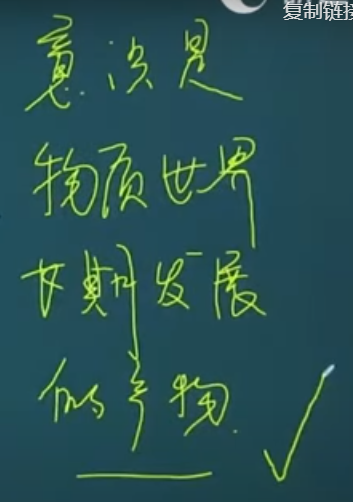 复制链接
意识是
物质世界
长期发展
的产物.